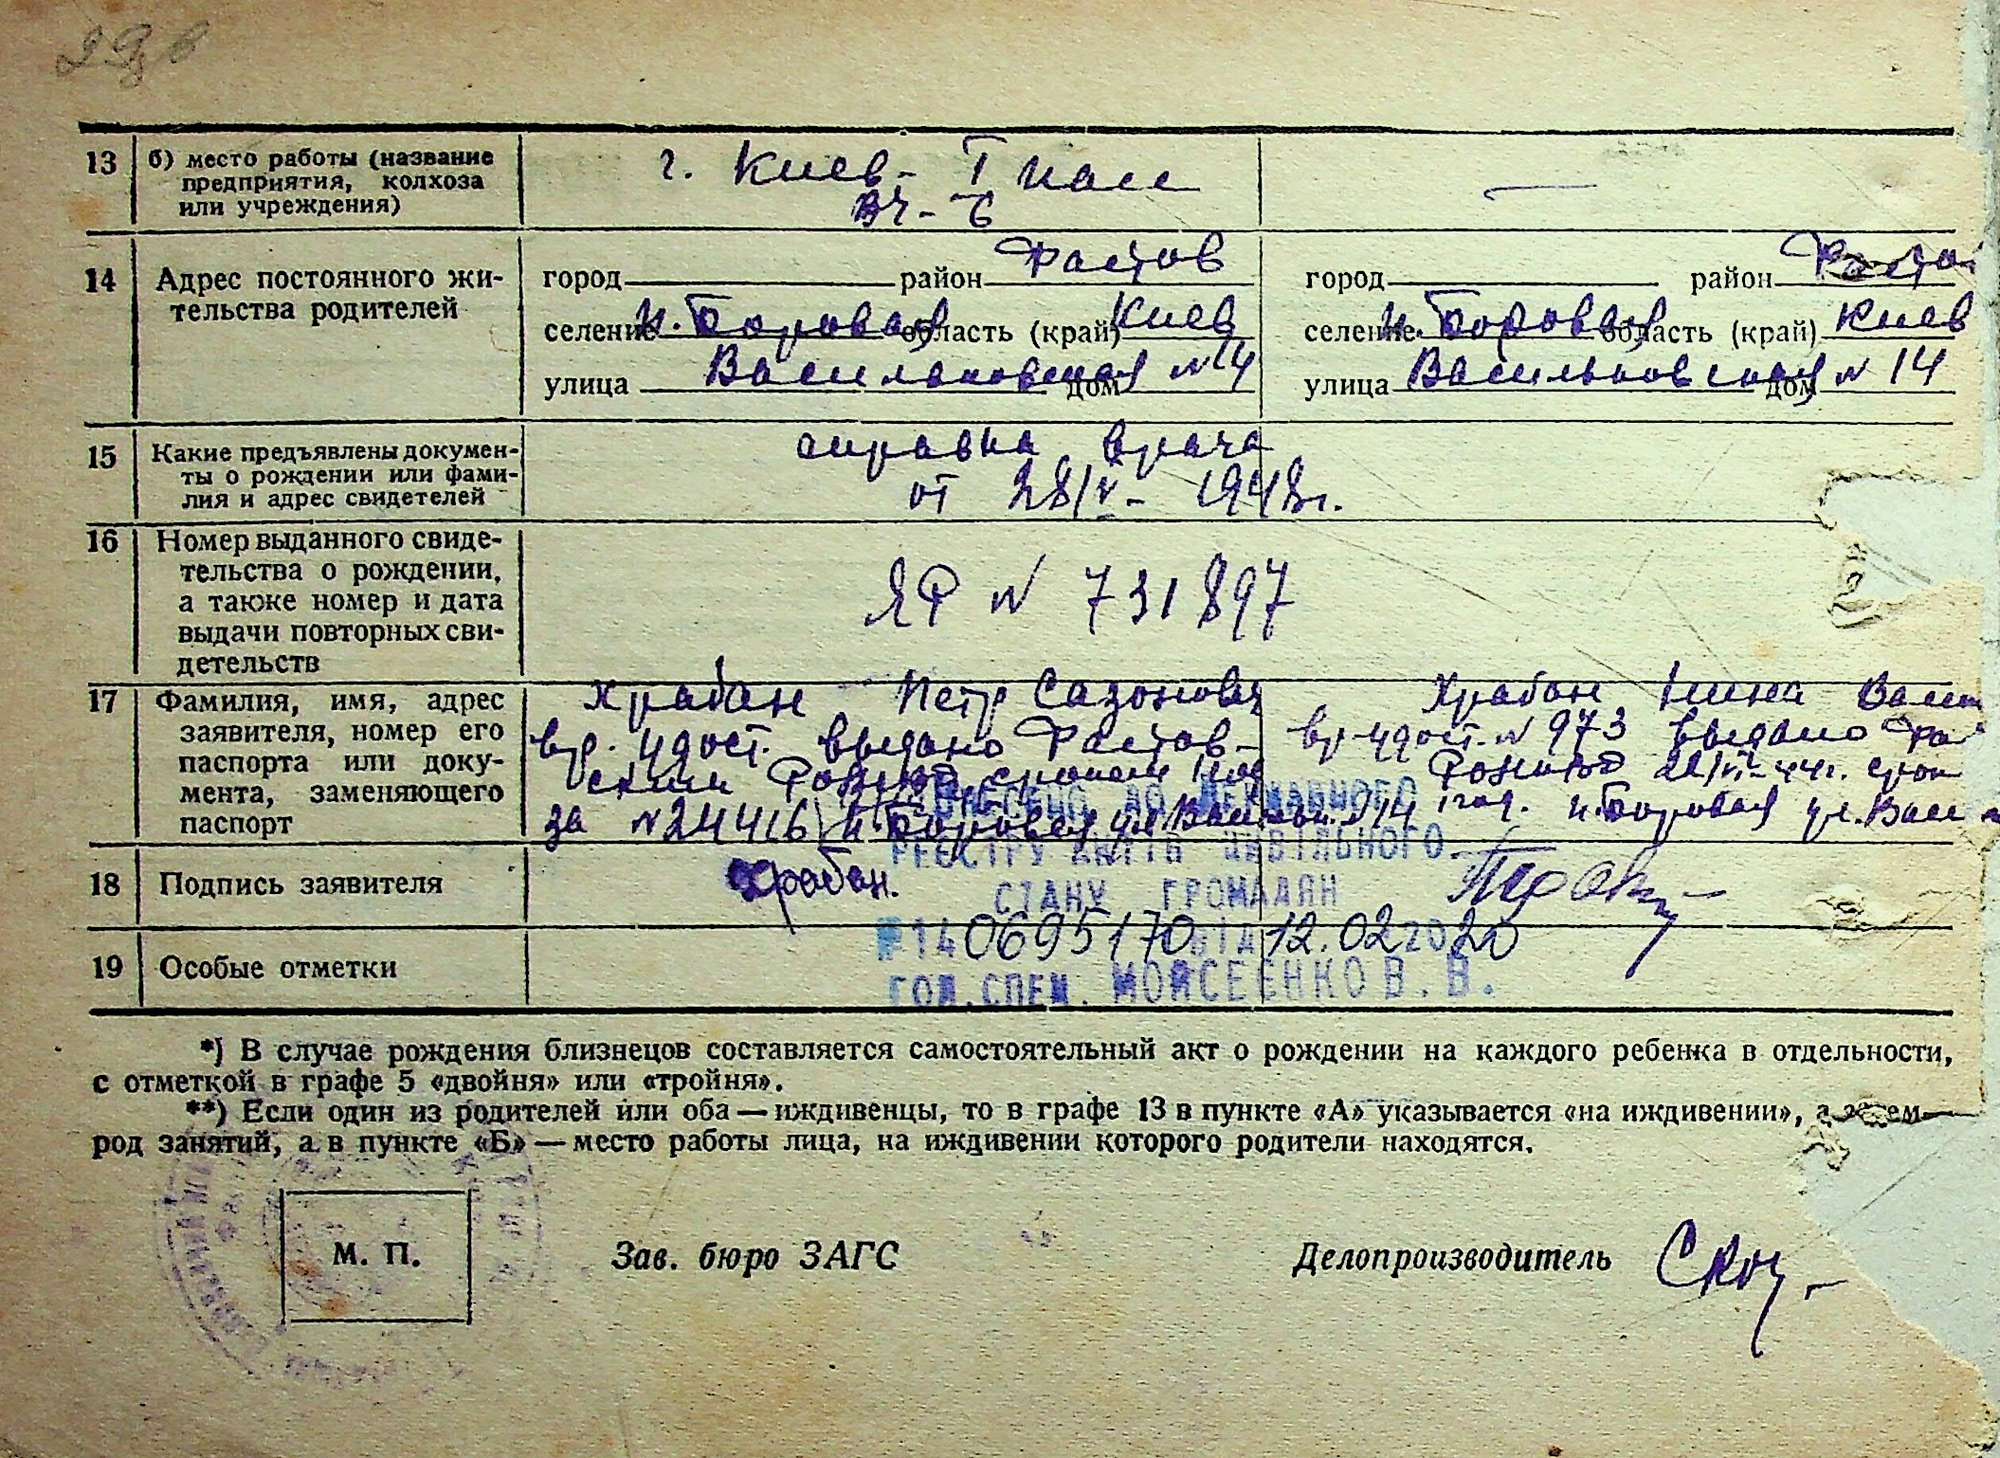 13 б) место работы (название предприятия, колхоза или учреждения)
г. Киев - I пасс
ВЧ-6
—
14 Адрес постоянного жи-
тельства родителей
город район Фастов
селение п. Боровая область (край) Киев
улица Васильковская дом №14
город район Фастов
селение п. Боровая область (край) Киев
улица Васильковская дом №14
15 Какие предъявлены докумен-
ты о рождении или фами-
лия и адрес свидетелей
справка врача
от 28/V - 1948г.
16 Номер выданного свиде-
тельства о рождении,
а также номер и дата
выдачи повторных сви-
детельств
ЯФ № 731897
17 Фамилия, имя, адрес
заявителя, номер его
паспорта или доку-
мента, заменяющего
паспорт
Храбан Петр Сазонович
вр. удост. выдано Фастов-
ским сроком
за №24416 п. Боровая ул. №14
Храбан Нина
вр. удост. № 973 выдано
срок
1 год. п. Боровая ул. Васи
18 Подпись заявителя
Храбан.
19 Особые отметки
ВНЕСЕНО ДО ДЕРЖАВНОГО
РЕЄСТРУ АКТІВ ЦИВІЛЬНОГО
СТАНУ ГРОМАДЯН
№ 140695170 ВІД 12.02.2020
ГОЛ.СПЕЦ. МОЙСЕЄНКО В.В.
*) В случае рождения близнецов составляется самостоятельный акт о рождении на каждого ребенка в отдельности,
с отметкой в графе 5 «двойня» или «тройня».
**) Если один из родителей или оба — иждивенцы, то в графе 13 в пункте «А» указывается «на иждивении», а затем —
род занятий, а в пункте «Б» — место работы лица, на иждивении которого родители находятся.
М. П. Зав. бюро ЗАГС Делопроизводитель